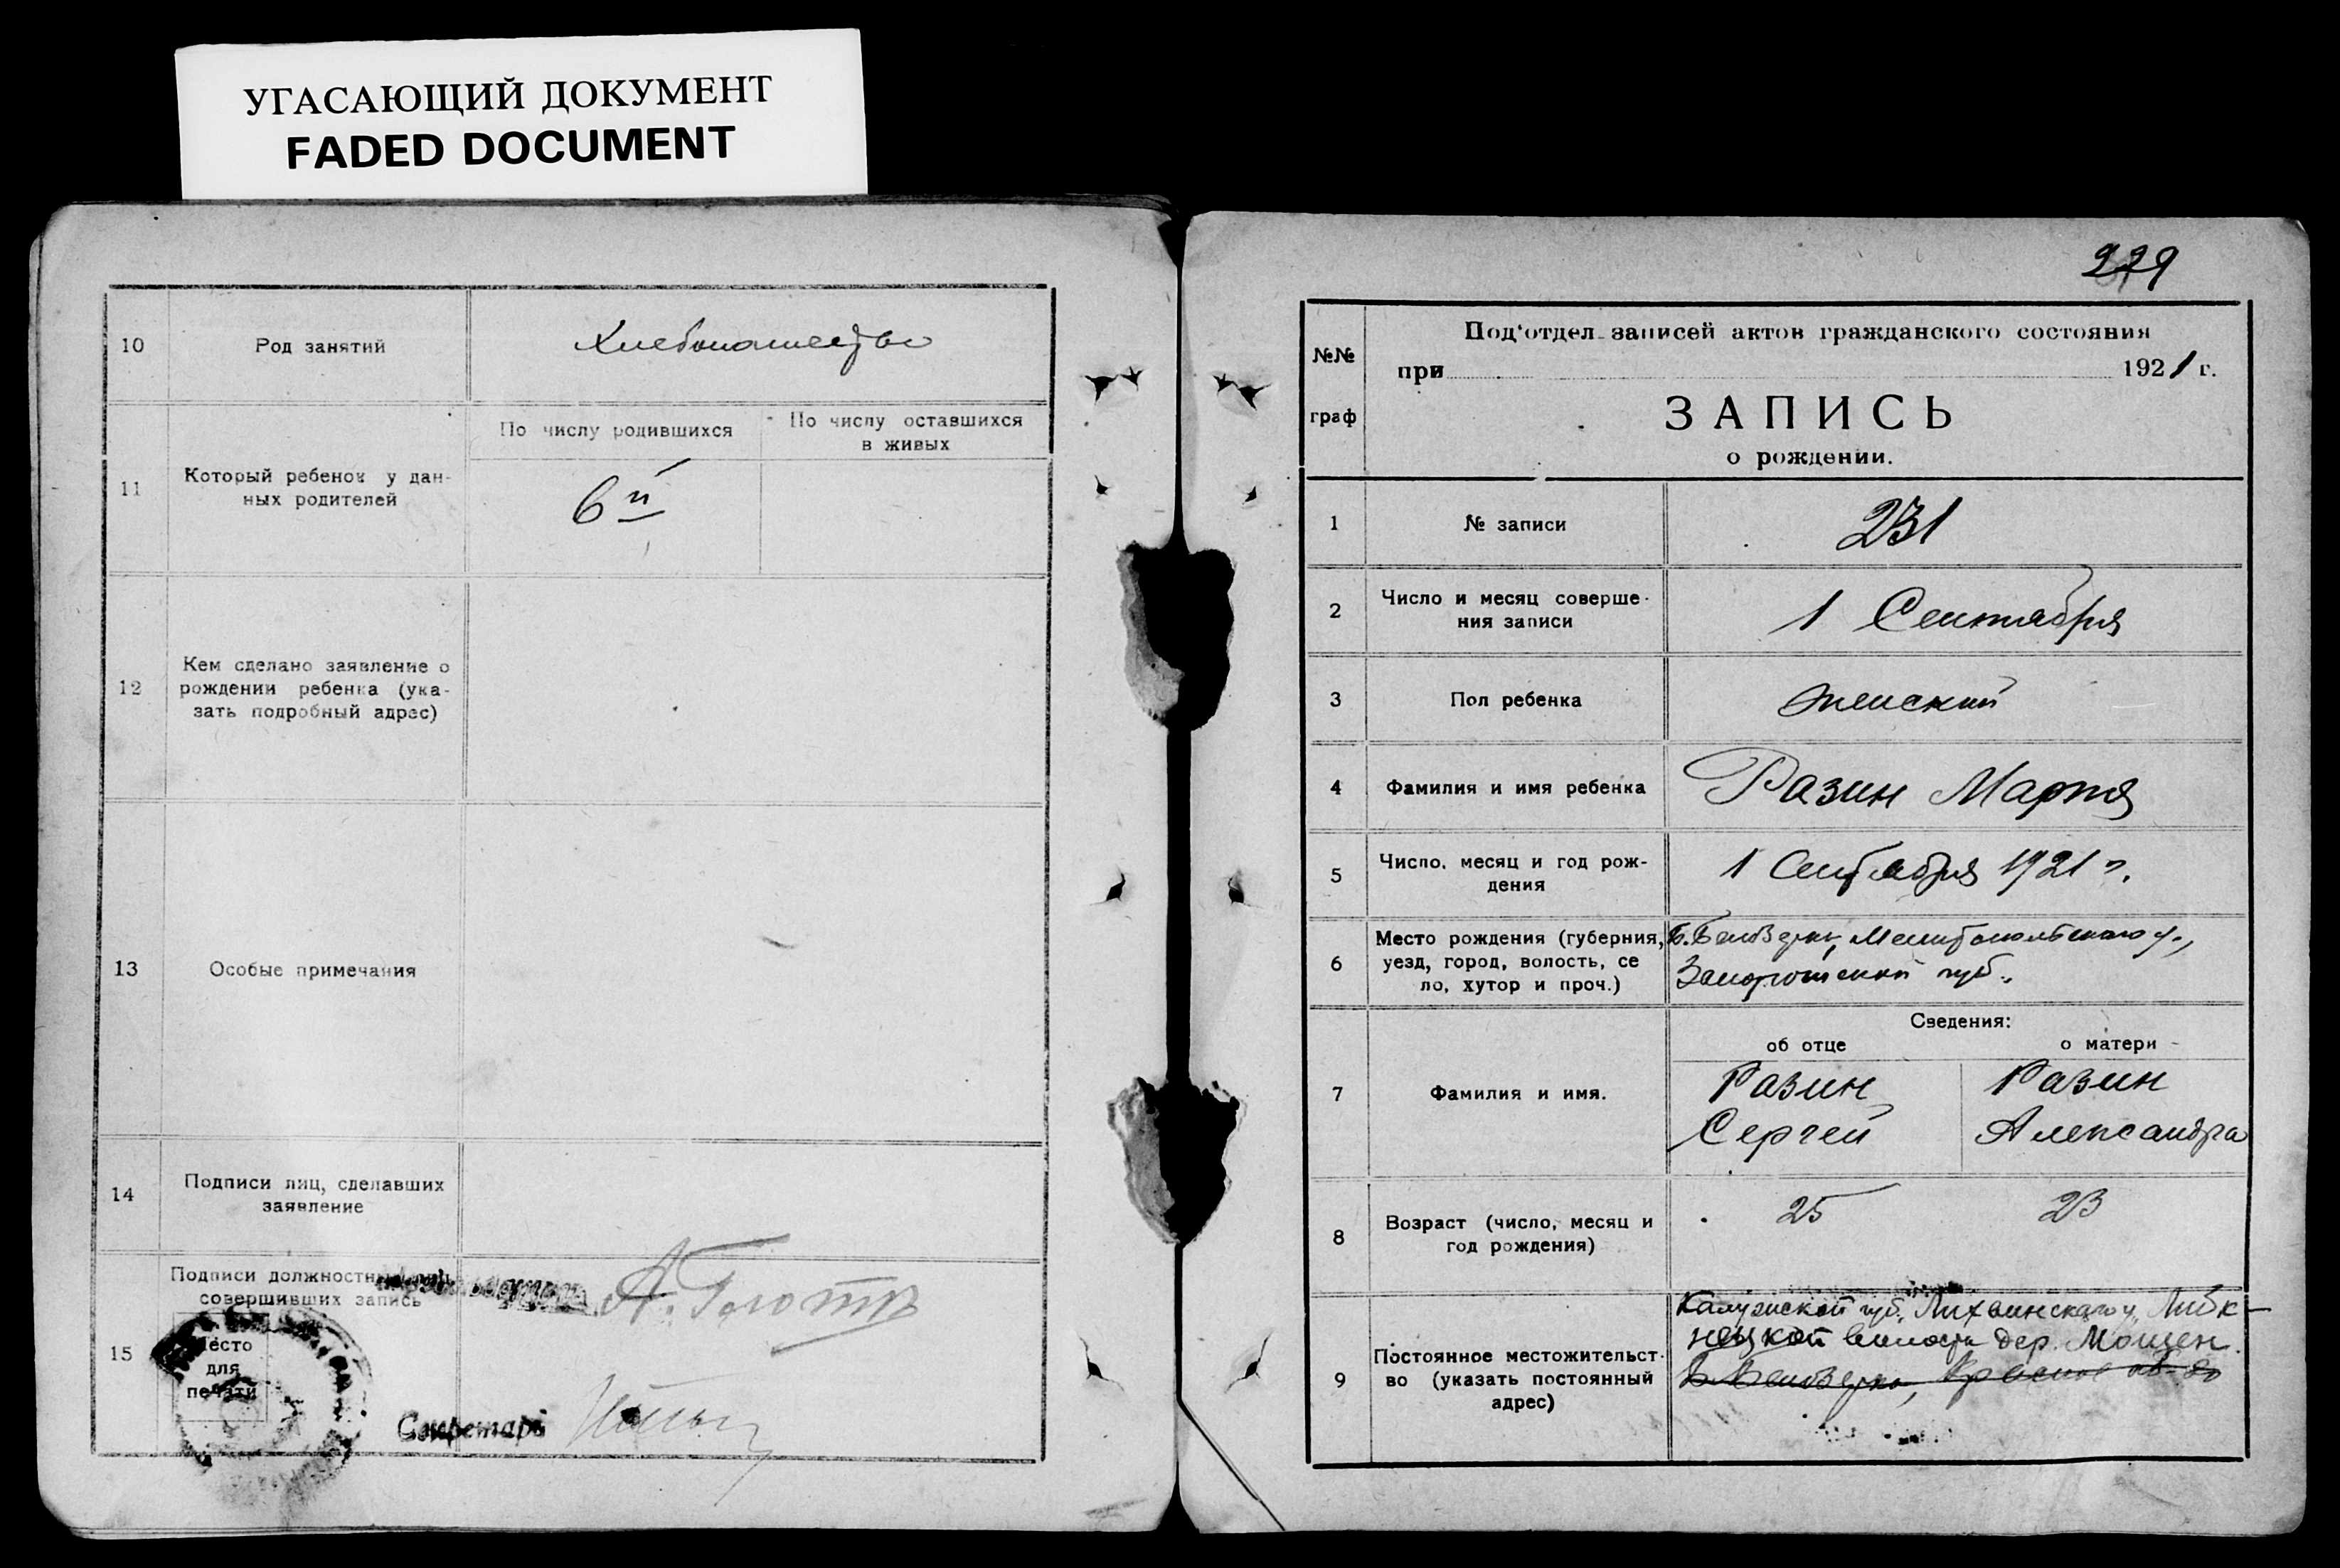 УГАСАЮЩИЙ ДОКУМЕНТ
FADED DOCUMENT
10
Род занятий
Хлебопашество
11
Который ребенок у дан-
ных родителей
По числу родившихся
По числу оставшихся
в живых
6й
12
Кем сделано заявление о
рождении ребенка (ука-
зать подробный адрес)
13
Особые примечания
14
Подписи лиц, сделавших
заявление
15
Подписи должностных лиц,
совершивших запись
Место
для
печати
Секретарь
229
№№
граф
Под'отдел записей актов гражданского состояния
при 1921 г.
ЗАПИСЬ
о рождении.
1
№ записи
231
2
Число и месяц соверше-
ния записи
1 Сентября
3
Пол ребенка
женский
4
Фамилия и имя ребенка
Разин Мария
5
Число, месяц и год рож-
дения
1 Сентября 1921 г.
6
Место рождения (губерния,
уезд, город, волость, се
ло, хутор и проч.)
Б. Белозерка, Мелитопольского у.,
Запорожской губ.
Сведения:
об отце
о матери
7
Фамилия и имя.
Разин
Сергей
Разин
Александра
8
Возраст (число, месяц и
год рождения)
25
23
9
Постоянное местожительст-
во (указать постоянный
адрес)
Калужской губ. Лихвинского у.
волости дер. Мощен.
Б. Белозерка,